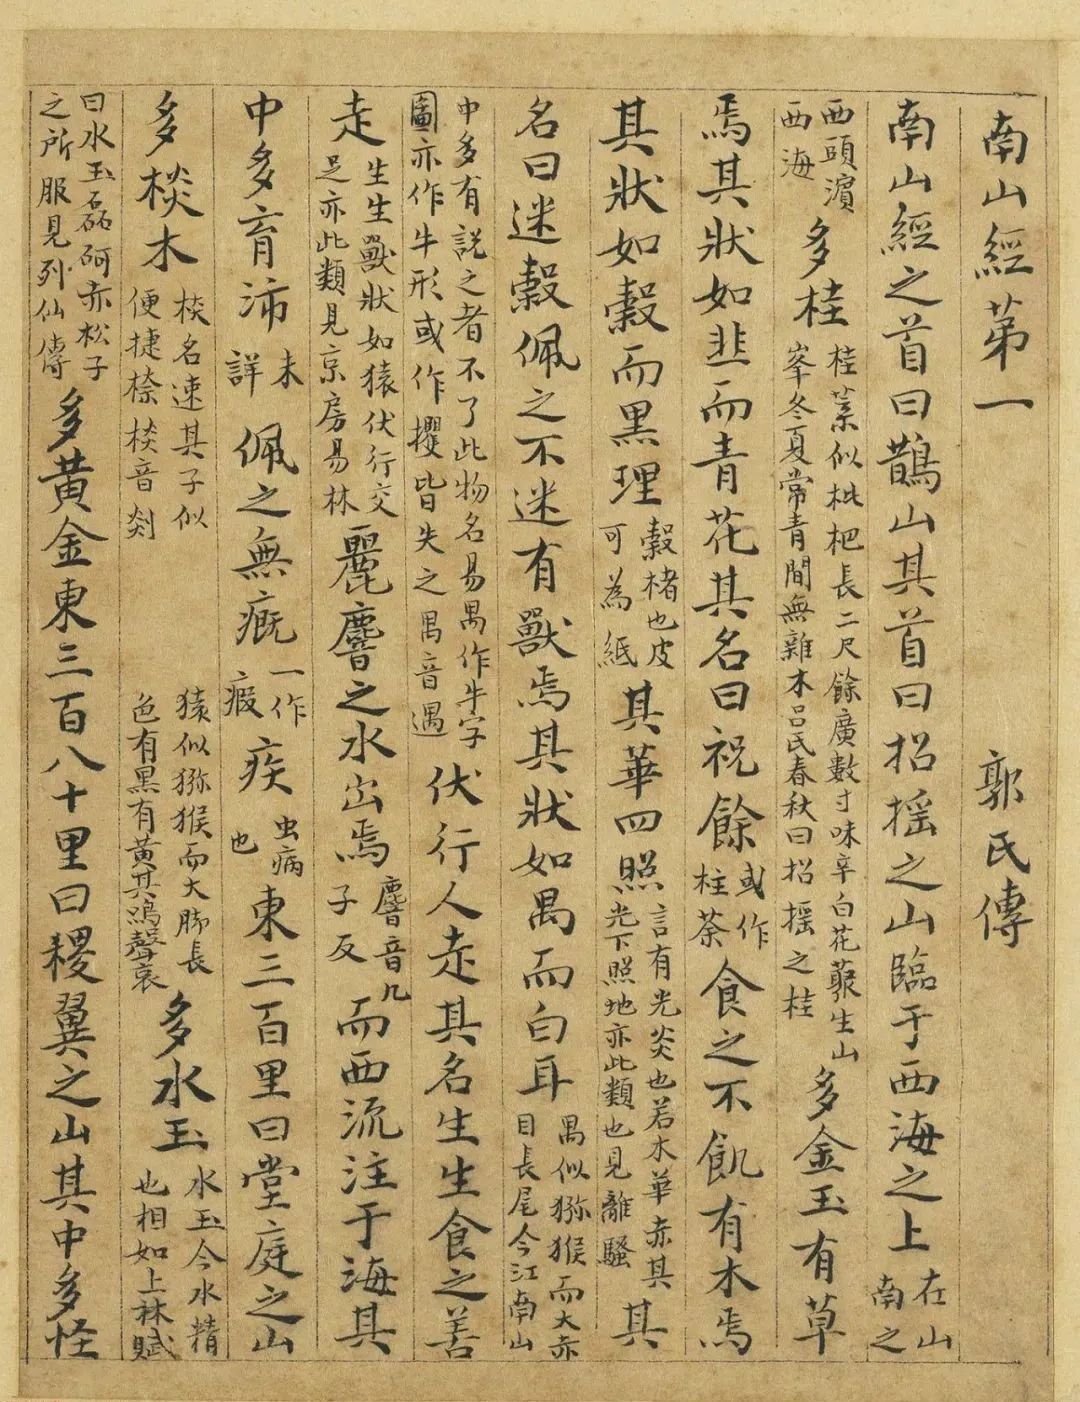 南山經第一 郭氏傳
南山經之首曰鵲山其首曰招摇之山臨于西海之上在山南之
西頭濵西海多桂桂葉似枇杷長二尺餘廣數寸味辛白花藂生山峯冬夏常青間無雜木吕氏春秋曰招摇之桂多金玉有草
焉其狀如韭而青花其名曰祝餘或作柱荼食之不飢有木焉
其狀如榖而黑理榖楮也皮可為紙其華四照言有光炎也若木華赤其光下照地亦此類也見離騷其
名曰迷榖佩之不迷有獸焉其狀如禺而白耳禺似獼猴而大赤目長尾今江南山
中多有説之者不了此物名易禺作牛字圖亦作牛形或作攫皆失之禺音遇伏行人走其名生生食之善
走生生獸狀如猿伏行交足亦此類見京房易林麗䴢之水出焉䴢音几子反而西流注于海其
中多育沛未詳佩之無一作瘕疾虫病也東三百里曰堂庭之山
多棪木棪名速其子似便捷棪音剡猿似獼猴而大脚長色有黑有黄其鳴聲哀多水玉水玉今水精也相如上林賦
曰水玉磊砢赤松子之所服見列仙傳多黄金東三百八十里曰稷翼之山其中多怪